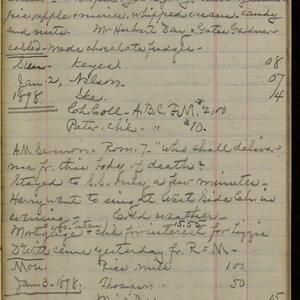 pineapple, mince, whipped cream, candy
and nuts. Mr Herbert Day & Gates Gardner
called. Made chocolate fudge.
Sun. Keyed 08
Jan. 2, Nelson. 07
1898 Ike. 14
Ch. Coll - A.B.C.F.M. $2.00
Pater. Chk. " $10.
A.M. Sermon. Rom. 7. "Who shall deliver
me fr. this body of death?
Stayed to S.S. only a few minutes.
Harry went to sing at West Side Ch. in
evening. Cold weather.
Mortgage & chk for interest for Lizzie
Dr Will came yesterday fr. R. & M.
Mon. Rice milk 100
Jan. 3. 1898. Thompson 50
15